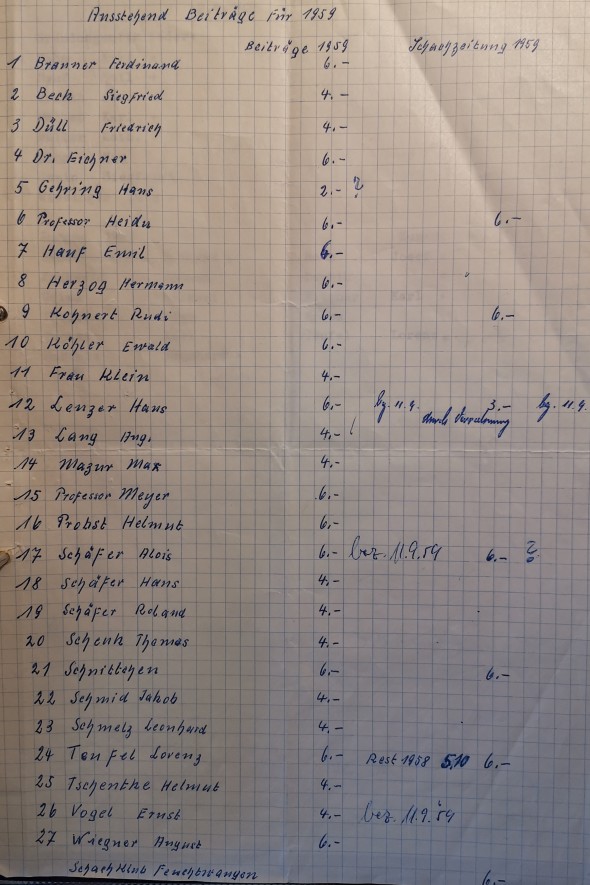 Ausstehend Beiträge für 1959
Beiträge 1959 Schachzeitung 1959
1 Branner Ferdinand 6.-
2 Beck Siegfried 4.-
3 Düll Friedrich 4.-
4 Dr. Eichner 6.-
5 Gehring Hans 2.- ?
6 Professor Heidn 6.- 6.-
7 Hauf Emil 6.-
8 Herzog Hermann 6.-
9 Kohnert Rudi 6.- 6.-
10 Köhler Ewald 6.-
11 Frau Klein 4.-
12 Lenzer Hans 6.- bz. 11.9. 3.- bz. 11.9.
durch
13 Lang Ang. 4.-
14 Mazur Max 4.-
15 Professor Meyer 6.-
16 Probst Helmut 6.-
17 Schäfer Alois 6.- bez. 11.9.59 6.- ?
18 Schäfer Hans 4.-
19 Schäfer Roland 4.-
20 Schenk Thomas 4.-
21 Schnittchen 6.- 6.-
22 Schmid Jakob 4.-
23 Schmelz Leonhard 4.-
24 Teufel Lorenz 6.- Rest 1958 5,10 6.-
25 Tschentke Helmut 4.-
26 Vogel Ernst 4.- bez. 11.9.59
27 Wiegner August 6.-
Schachklub Feuchtwangen 6.-